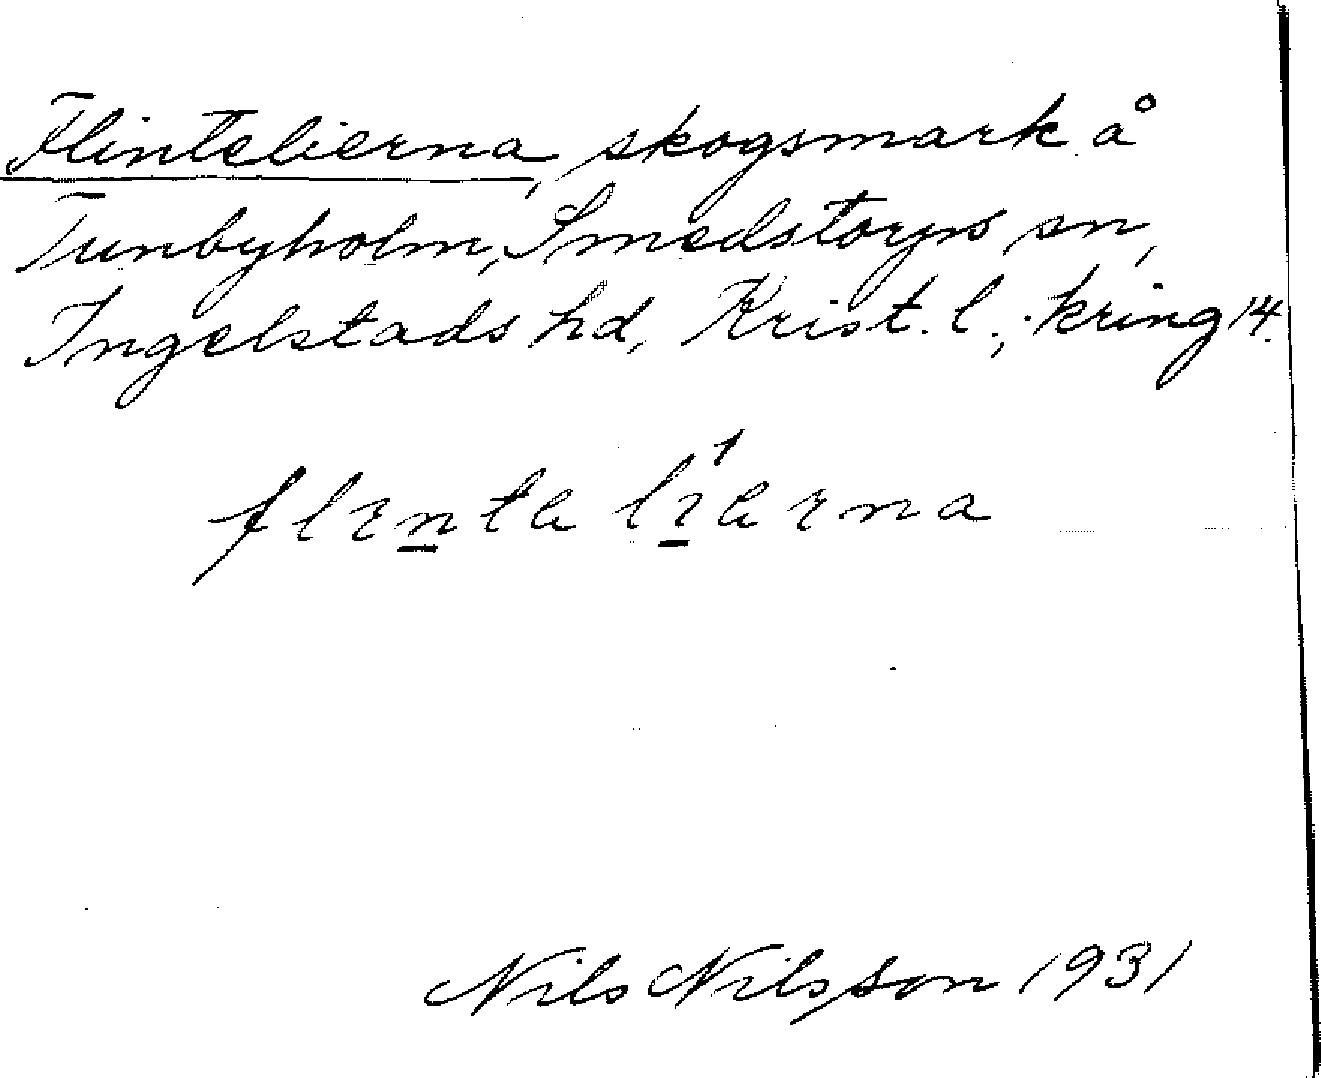 Flintelierna, skogsmark å
Tunbyholm, Smedstorps sn,
Ingelstads hd, Krist. l., kring 14.
flɪnte lɪ́erna
Nils Nilsson 1931